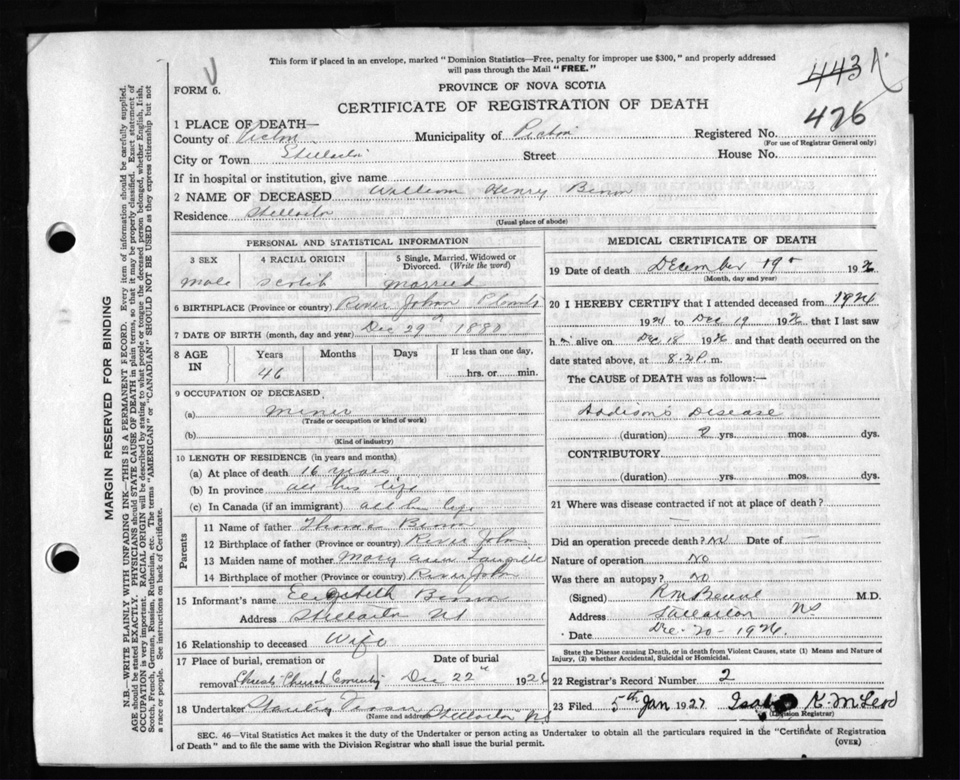 This form if placed in an envelope, marked "Dominion Statistics—Free, penalty for improper use $300," and properly addressed
will pass through the Mail "FREE."
443
A
FORM 6.
PROVINCE OF NOVA SCOTIA
CERTIFICATE OF REGISTRATION OF DEATH
476
1 PLACE OF DEATH—
County of Pictou Municipality of Pictou Registered No.
(For use of Registrar General only)
City or Town Stellarton Street House No.
If in hospital or institution, give name
2 NAME OF DECEASED William Henry
Residence Stellarton
(Usual place of abode)
PERSONAL AND STATISTICAL INFORMATION
3 SEX 4 RACIAL ORIGIN 5 Single, Married, Widowed or Divorced. (Write the word)
male Scotch married
6 BIRTHPLACE (Province or country) River John
7 DATE OF BIRTH (month, day and year) Dec 29th 1880
8 AGE IN Years Months Days If less than one day,
46 hrs. or min.
9 OCCUPATION OF DECEASED
(a) miner
(Trade or occupation or kind of work)
(b)
(Kind of industry)
10 LENGTH OF RESIDENCE (in years and months)
(a) At place of death 16 years
(b) In province all his life
(c) In Canada (if an immigrant) all his life
Parents
11 Name of father Thomas
12 Birthplace of father (Province or country) River John
13 Maiden name of mother Mary Ann Langille
14 Birthplace of mother (Province or country) River John
15 Informant's name Elizabeth
Address Stellarton NS
16 Relationship to deceased Wife
17 Place of burial, cremation or removal Date of burial
Church Dec 22nd 1926
18 Undertaker Stellarton NS
(Name and address)
MEDICAL CERTIFICATE OF DEATH
19 Date of death December 19th 1926
(Month, day and year)
20 I HEREBY CERTIFY that I attended deceased from 1924
1924 to Dec 19 1926 that I last saw
him alive on Dec 18 1926 and that death occurred on the
date stated above, at 8. P. m.
The CAUSE of DEATH was as follows:—
Addison's Disease
(duration) 2 yrs. mos. dys.
CONTRIBUTORY
(duration) yrs. mos. dys.
21 Where was disease contracted if not at place of death? —
Did an operation precede death? No Date of —
Nature of operation No
Was there an autopsy? No
(Signed) M.D.
Address Stellarton NS
Date Dec-20-1926.
State the Disease causing Death, or in death from Violent Causes, state (1) Means and Nature of
Injury, (2) whether Accidental, Suicidal or Homicidal.
22 Registrar's Record Number 2
23 Filed 5th Jan 1927 K. McLeod
(Division Registrar)
SEC. 46—Vital Statistics Act makes it the duty of the Undertaker or person acting as Undertaker to obtain all the particulars required in the "Certificate of Registration
of Death" and to file the same with the Division Registrar who shall issue the burial permit.
(OVER)
MARGIN RESERVED FOR BINDING
N.B.—WRITE PLAINLY WITH UNFADING INK—THIS IS A PERMANENT RECORD. Every item of information should be carefully supplied.
AGE should be stated EXACTLY. PHYSICIANS should STATE CAUSE OF DEATH in plain terms, so that it may be properly classified. Exact statement of
OCCUPATION is very important. RACIAL ORIGIN will be described by stating to what people or tongue the deceased person belonged, whether English, Irish,
Scotch, French, German, Russian, Ruthenian, etc. The terms "AMERICAN" or "CANADIAN" SHOULD NOT BE USED as they express citizenship but not
a race or people. See instructions on back of Certificate.